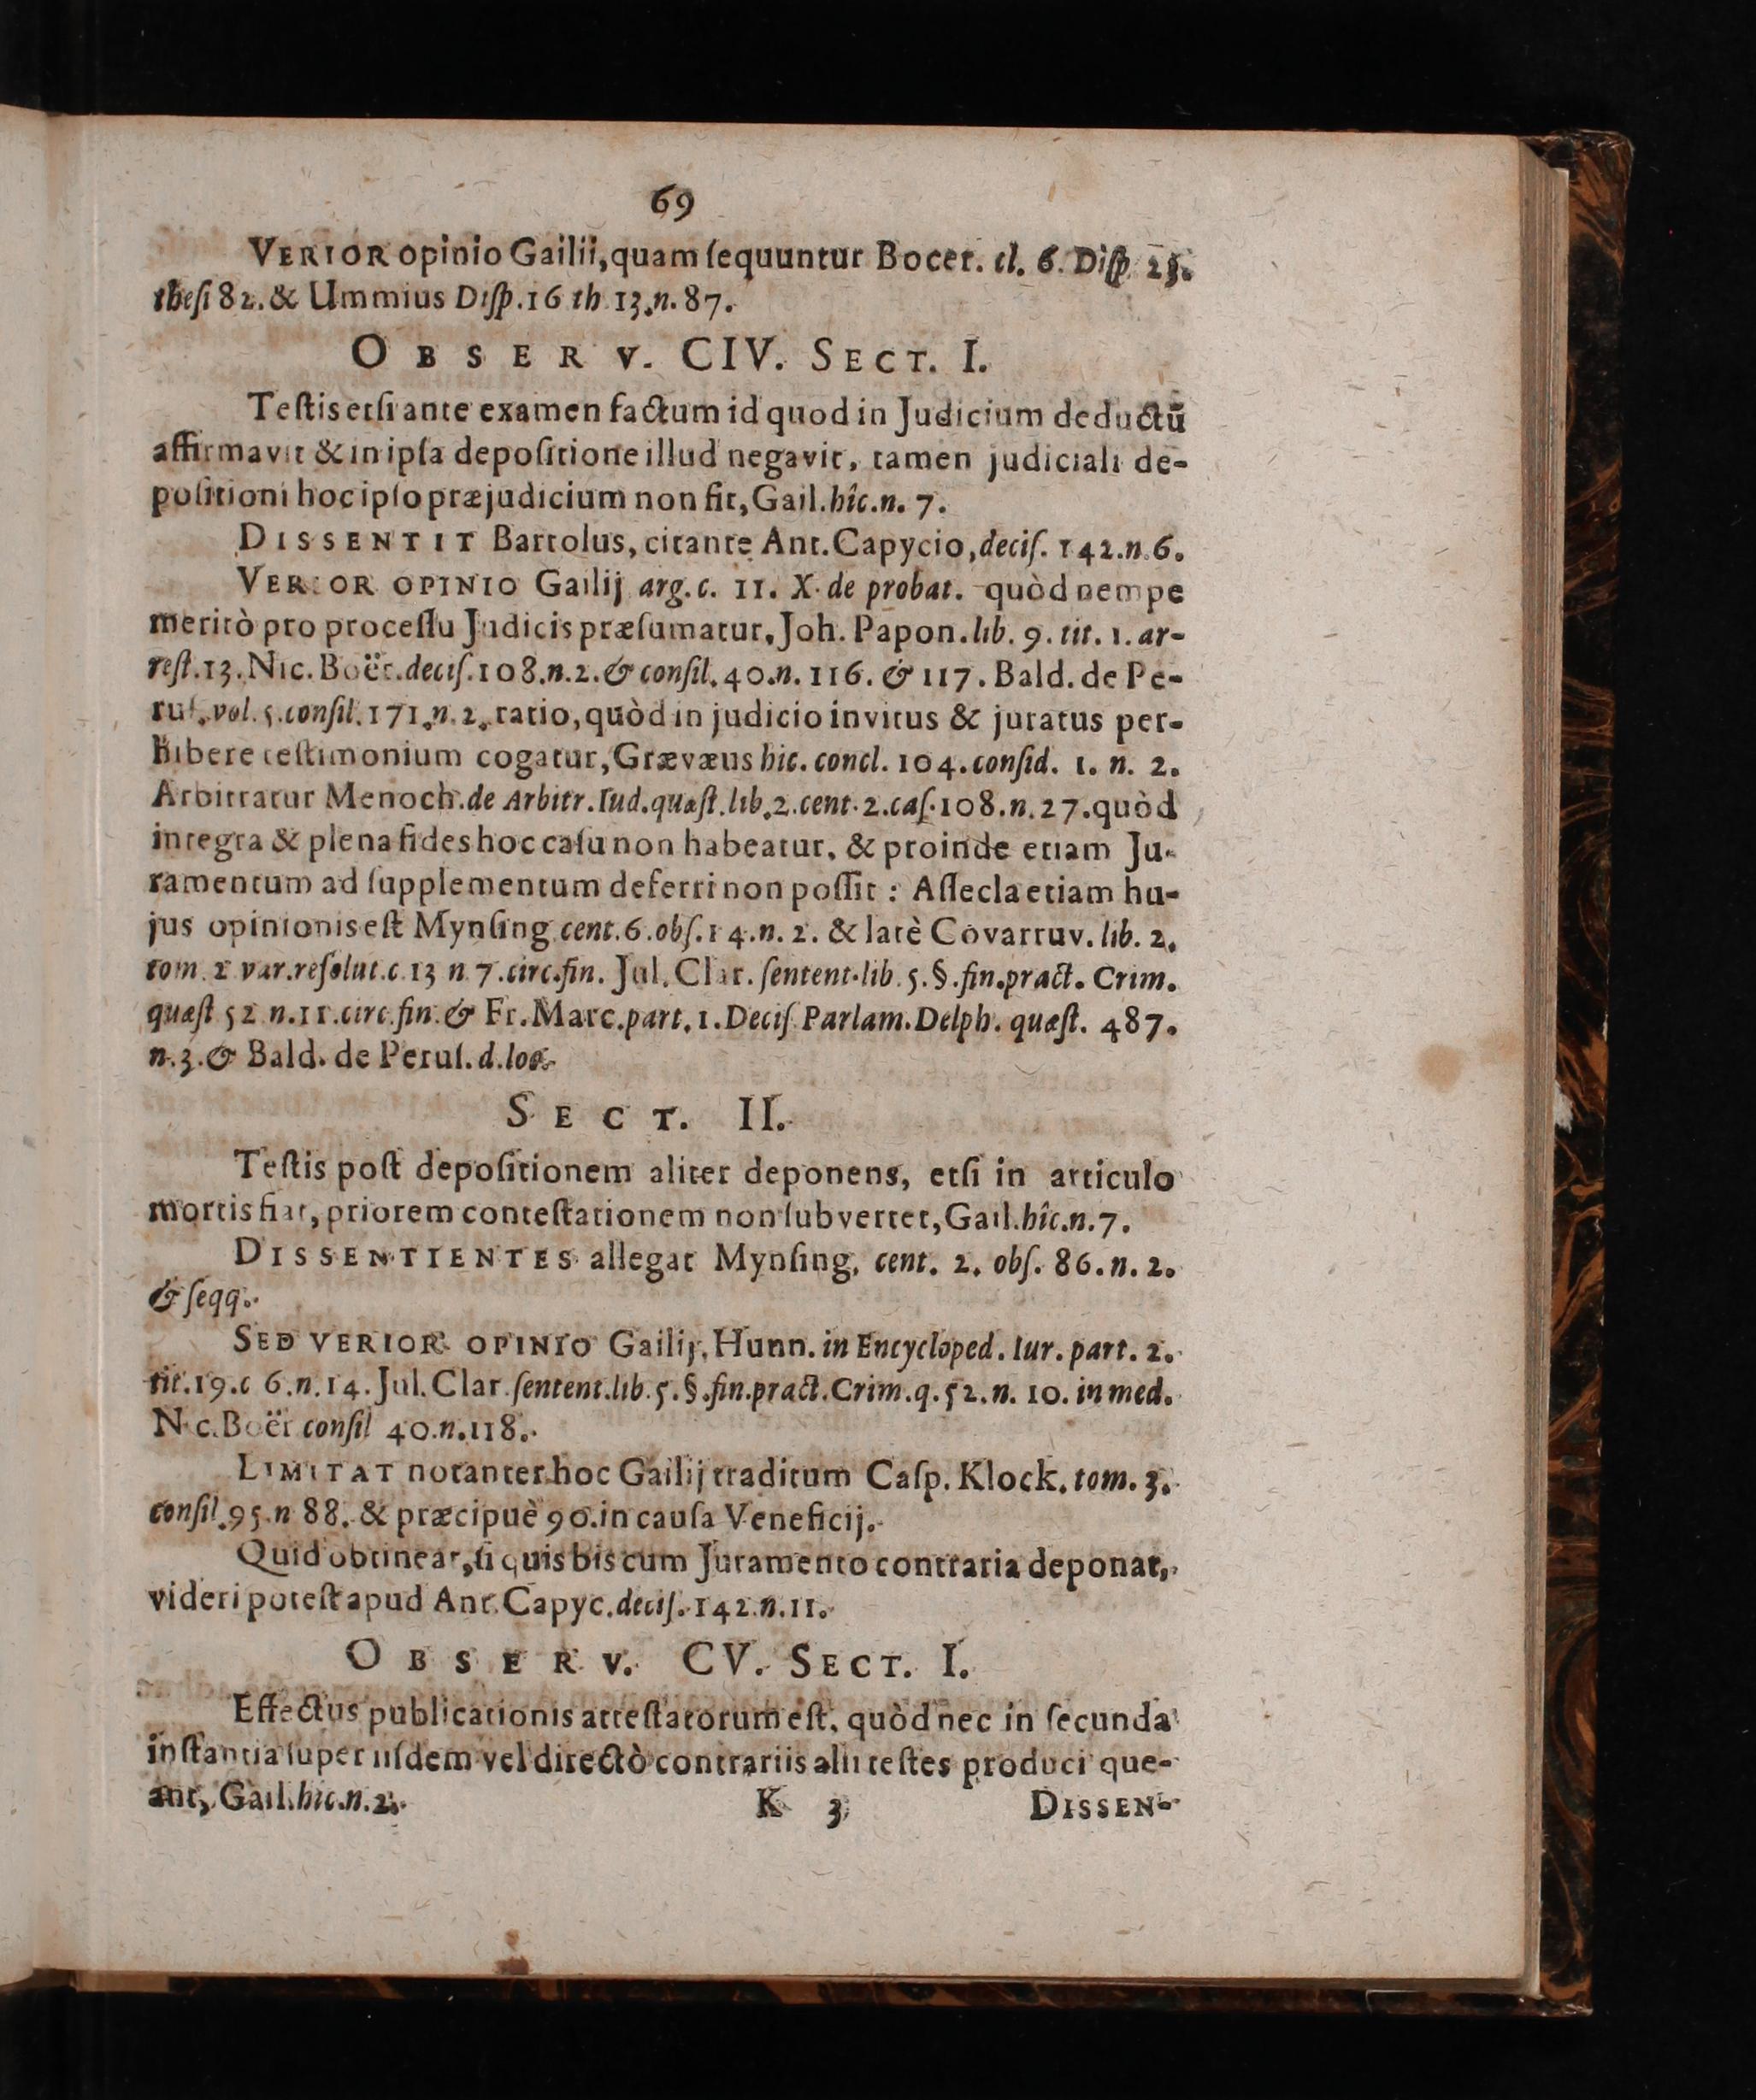 69
VERIOR opinio Gailii, quam ſequuntur Bocer. cl. 6. Diſp. 25.
theſi 82. & Ummius Diſp. 16 th 13. n. 87.
OBSERV. CIV. SECT. I.
Teſtis etſi ante examen factum id quod in Judicium deductū
affirmavit & in ipſa depoſitione illud negavit, tamen judiciali de-
poſitioni hoc ipſo præjudicium non fit, Gail. hîc. n. 7.
DISSENTIT Bartolus, citante Ant. Capycio, deciſ. 142. n. 6.
VERIOR OPINIO Gailij arg. c. 11. X. de probat. quòd nempe
meritò pro proceſſu Judicis præſumatur, Joh. Papon. lib. 9. tit. 1. ar-
reſt. 13. Nic. Boër. deciſ. 108. n. 2. & conſil. 40. n. 116. & 117. Bald. de Pe-
ruſ. vol. 5. conſil. 171. n. 2. ratio, quòd in judicio invitus & juratus per-
hibere teſtimonium cogatur, Grævæus hic. concl. 104. conſid. 1. n. 2.
Arbitratur Menoch. de Arbitr. Iud. quæſt. lib. 2. cent. 2. caſ. 108. n. 27. quòd
integra & plena fides hoc caſu non habeatur, & proinde etiam Ju-
ramentum ad ſupplementum deferri non poſſit : Aſſecla etiam hu-
jus opinionis eſt Mynſing. cent. 6. obſ. 14. n. 2. & latè Covarruv. lib. 2.
tom. 1 var. reſolut. c. 13 n. 7. circ. fin. Jul. Clar. ſentent. lib. 5. §. fin. pract. Crim.
quæſt 52 n. 11. circ. fin. & Fr. Marc. part. 1. Deciſ. Parlam. Delph. quæſt. 487.
n. 3. & Bald. de Peruſ. d. loc.
SECT. II.
Teſtis poſt depoſitionem aliter deponens, etſi in articulo
mortis fiat, priorem conteſtationem non ſubvertet, Gail. hîc. n. 7.
DISSENTIENTES allegat Mynſing. cent. 2. obſ. 86. n. 2.
& ſeqq.
SED VERIOR OPINIO Gailij, Hunn. in Encycloped. Iur. part. 2.
tit. 19. c 6. n. 14. Jul. Clar. ſentent. lib. 5. §. fin. pract. Crim. q. 52. n. 10. in med.
Nic. Boër conſil 40. n. 118.
LIMITAT notanter hoc Gailij traditum Caſp. Klock. tom. 3.
conſil. 95. n 88. & præcipuè 90. in cauſa Veneficij.
Quid obtineat, ſi quis bis cum Juramento contraria deponat,
videri poteſt apud Ant. Capyc. deciſ. 142. n. 11.
OBSERV. CV. SECT. I.
Effectus publicationis atteſtatorum eſt, quòd nec in ſecunda
inſtantia ſuper iiſdem vel directò contrariis alii teſtes produci que-
ant, Gail. hic. n. 2.
K 3
DISSEN-